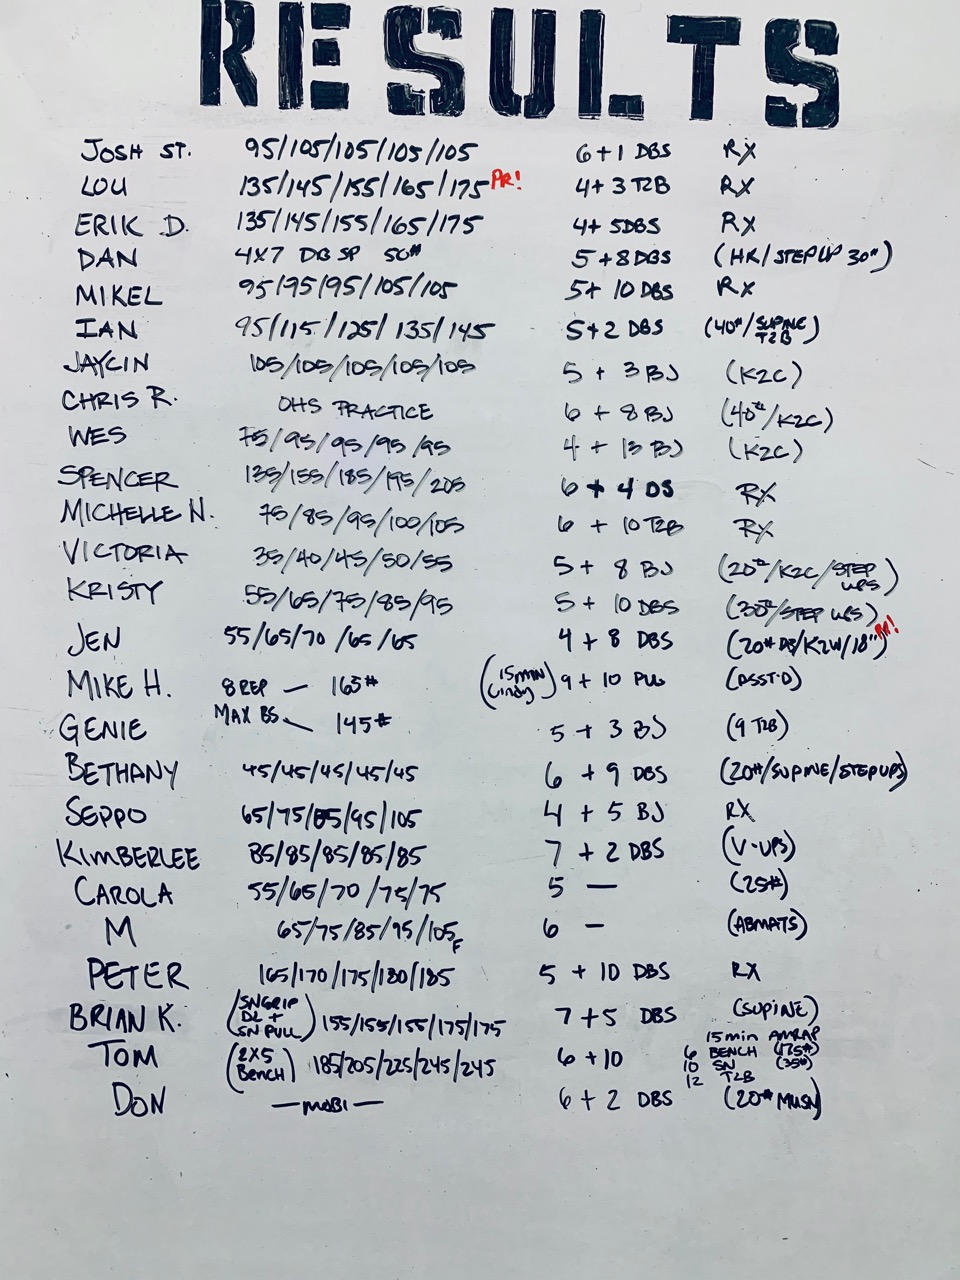 RESULTS
JOSH ST. 95/105/105/105/105 6+1 DBS RX
LOU 135/145/155/165/175 PR! 4+3 T2B RX
ERIK D. 135/145/155/165/175 4+5DBS RX
DAN 4X7 DB SP 50# 5+8DBS (HK/STEP UP 30#)
MIKEL 95/95/95/105/105 5+10 DBS RX
IAN 95/115/125/135/145 5+2 DBS (40#/SUPINE T2B)
JAYCIN 105/105/105/105/105 5+3 BJ (K2C)
CHRIS R. OHS PRACTICE 6+8 BJ (40#/K2C)
WES 75/95/95/95/95 4+13 BJ (K2C)
SPENCER 135/155/185/195/205 6+4 DS RX
MICHELLE N. 75/85/95/100/105 6+10 T2B RX
VICTORIA 35/40/45/50/55 5+8 BJ (20#/K2C/STEP UPS)
KRISTY 55/65/75/85/95 5+10 DBS (30#/STEP UPS)
JEN 55/65/70/65/65 4+8 DBS (20# DB/K2W/18") PR!
MIKE H. 8 REP — 165# (15MIN Cindy) 9+10 PU (ASST'D)
GENIE MAX BS — 145# 5+3 BJ (9 T2B)
BETHANY 45/45/45/45/45 6+9 DBS (20#/SUPINE/STEP UPS)
SEPPO 65/75/85/95/105 4+5 BJ RX
KIMBERLEE 85/85/85/85/85 7+2 DBS (V-UPS)
CAROLA 55/65/70/75/75 5 — (25#)
M 65/75/85/95/105F 6 — (ABMATS)
PETER 165/170/175/180/185 5+10 DBS RX
BRIAN K. (SN GRIP DL + SN PULL) 155/155/155/175/175 7+5 DBS (SUPINE)
TOM (2X5 BENCH) 185/205/225/245/245 6+10 15 min AMRAP 6 BENCH (175#) 10 SN (35#) 12 T2B
DON —MOBI— 6+2 DBS (20# MUSN)